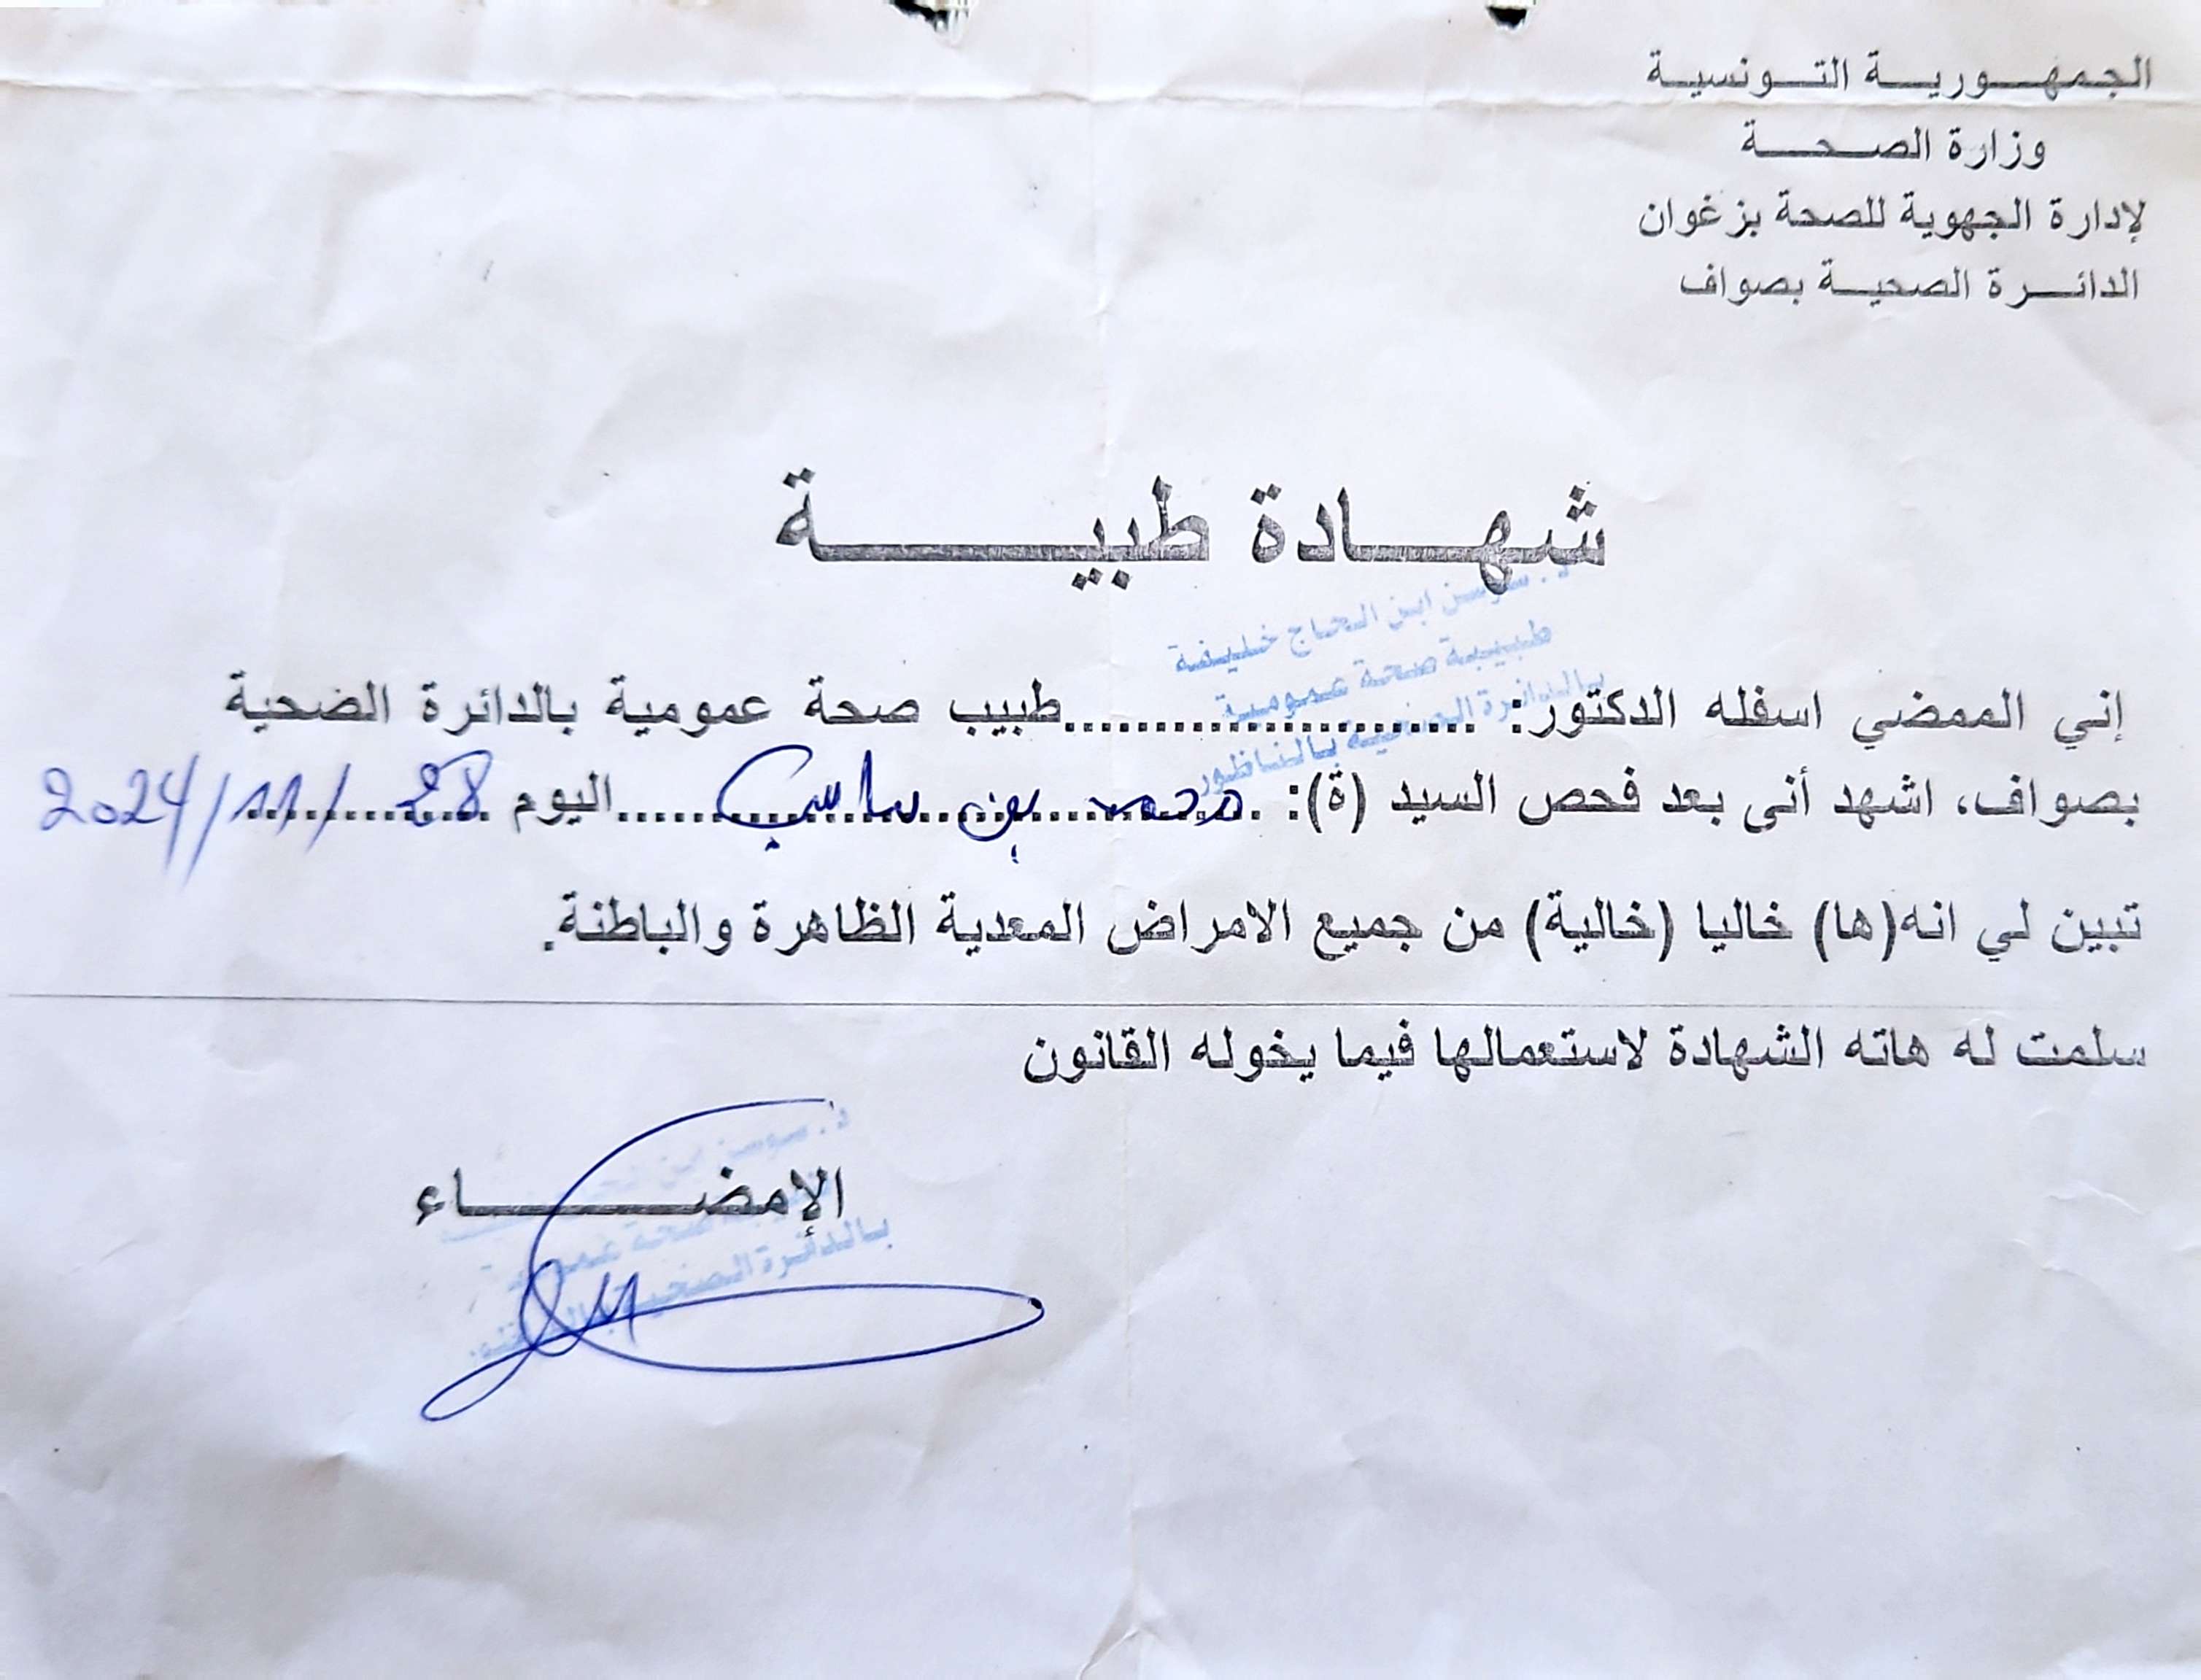 الجمهورية التونسية
وزارة الصحة
لإدارة الجهوية للصحة بزغوان
الدائرة الصحية بصواف
شهادة طبية
د. سوسن ابن الحاج خليفة
طبيبة صحة عمومية
بالدائرة الصحية بالناظور
إني الممضي اسفله الدكتور: ........................طبيب صحة عمومية بالدائرة الضحية
بصواف، اشهد أنى بعد فحص السيد (ة): محمد بن ساسي اليوم 28 /11/2024
تبين لي انه(ها) خاليا (خالية) من جميع الامراض المعدية الظاهرة والباطنة.
سلمت له هاته الشهادة لاستعمالها فيما يخوله القانون
الإمضاء
د. سوسن ابن
صحة
بالدائرة الصحية